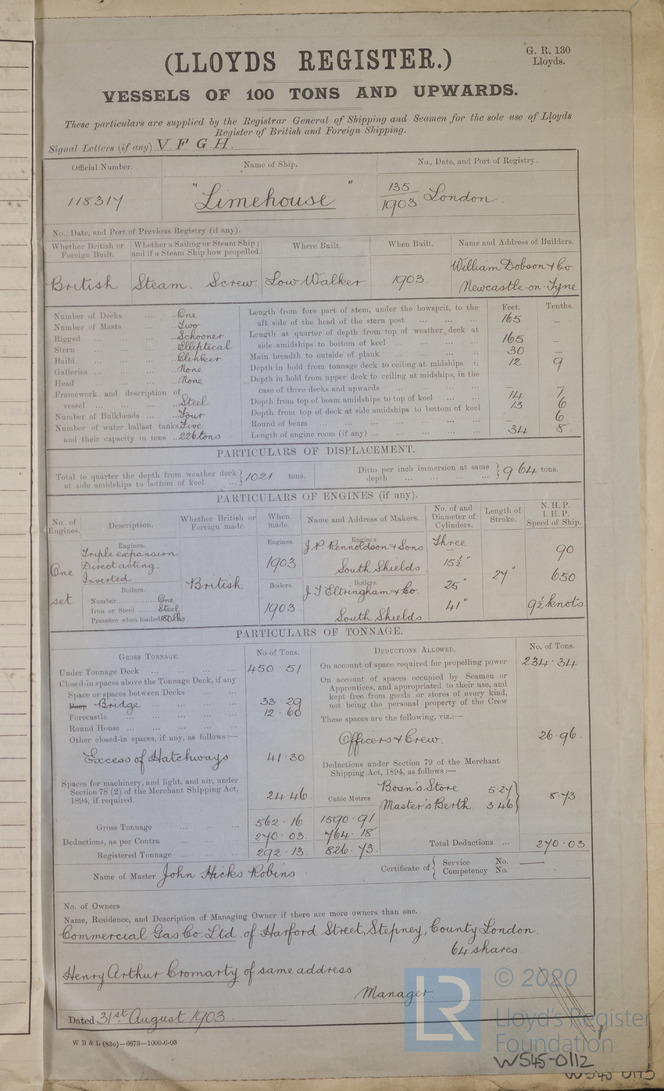 G. R. 130
Lloyds.
(LLOYDS REGISTER.)
VESSELS OF 100 TONS AND UPWARDS.
These particulars are supplied by the Registrar General of Shipping and Seamen for the sole use of Lloyds
Register of British and Foreign Shipping.
Signal Letters (if any) V F G H.
Official Number. Name of Ship. No., Date, and Port of Registry.
118317 "Limehouse" 135/1903 London.
No., Date, and Port of Previous Registry (if any).
Whether British or Foreign Built. Whether a Sailing or Steam Ship; and if a Steam Ship how propelled. Where Built. When Built. Name and Address of Builders.
British Steam Screw Low Walker 1903. William Dobson & Co
Newcastle-on-Tyne
Feet. Tenths.
Number of Decks ... One
Number of Masts ... Two
Rigged ... Schooner
Stern ... Elliptical
Build ... Clencher
Galleries ... None
Head ... None
Framework and description of
vessel ... Steel
Number of Bulkheads ... Four
Number of water ballast tanks Five
and their capacity in tons .. 226 tons
Length from fore part of stem, under the bowsprit, to the
aft side of the head of the stern post ... 165 –
Length at quarter of depth from top of weather deck at
side amidships to bottom of keel ... 165 –
Main breadth to outside of plank ... 30 –
Depth in hold from tonnage deck to ceiling at midships .. 12 9
Depth in hold from upper deck to ceiling at midships, in the
case of three decks and upwards – –
Depth from top of beam amidships to top of keel ... 14 7
Depth from top of deck at side amidships to bottom of keel 13 6
Round of beam ... – 6
Length of engine room (if any) ... 34 8
PARTICULARS OF DISPLACEMENT.
Total to quarter the depth from weather deck
at side amidships to bottom of keel ... 1021 tons.
Ditto per inch immersion at same
depth ... 9.64 tons.
PARTICULARS OF ENGINES (if any).
No. of Engines. Description. Whether British or Foreign made. When made. Name and Address of Makers. No. of and Diameter of Cylinders. Length of Stroke. N. H. P. I. H. P. Speed of Ship.
One
set
Engines.
Triple expansion
Direct acting.
Inverted
Boilers.
Number ... One
Iron or Steel ... Steel
Pressure when loaded 180 lbs
British
Engines.
1903
Boilers.
1903
Engines.
J. P. Rennoldson & Sons
South Shields
Boilers.
J. T. Eltringham & Co.
South Shields
Three
15½"
25"
41"
27"
90
650
9½ knots
PARTICULARS OF TONNAGE.
Gross Tonnage. No of Tons.
Under Tonnage Deck ... 450.51
Closed-in spaces above the Tonnage Deck, if any
Space or spaces between Decks
Poop Bridge 33.29
Forecastle 12.60
Round House ...
Other closed-in spaces, if any, as follows:—
Excess of Hatchways 41.30
Spaces for machinery, and light, and air, under
Section 78 (2) of the Merchant Shipping Act,
1894, if required. 24.46
Cubic Metres
Gross Tonnage ... 562.16 1590.91
Deductions, as per Contra ... 270.03 764.18
Registered Tonnage ... 292.13 826.73
Deductions Allowed. No. of Tons.
On account of space required for propelling power 234.34
On account of spaces occupied by Seamen or
Apprentices, and appropriated to their use, and
kept free from goods or stores of every kind,
not being the personal property of the Crew
These spaces are the following, viz.:—
Officers & Crew. 26.96.
Deductions under Section 79 of the Merchant
Shipping Act, 1894, as follows:—
Bosn's Store 5.27
Master's Berth 3.46
8.73
Total Deductions ... 270.03
Name of Master John Hicks Robins
Certificate of { Service No. ——
Competency No.
No. of Owners
Name, Residence, and Description of Managing Owner if there are more owners than one.
Commercial Gas Co. Ltd. of Harford Street, Stepney, County London.
64 shares
Henry Arthur Cromarty of same address
Manager
Dated 31st August 1903.
W B & L (83c)—6673—1000-6-03
© 2020
LR
Lloyd's Register
Foundation
W545-0112